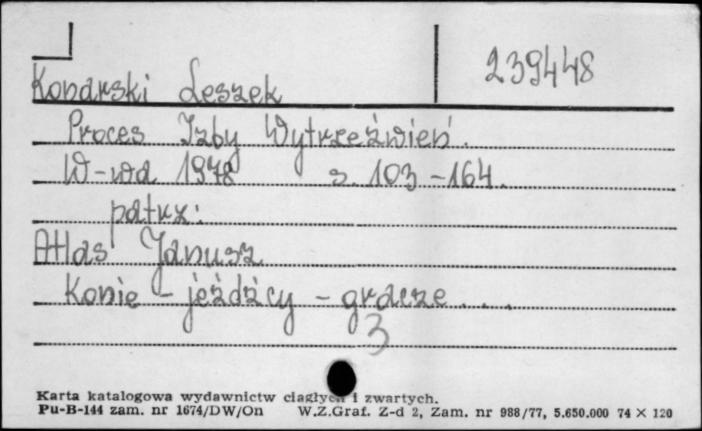 239448
Konarski Leszek
Proces Izby Wytrzeźwień.
W-wa 1978 s. 103-164.
patrz:
Atlas Janusz
Konie - jeźdźcy - gracze...
3
Karta katalogowa wydawnictw ciągłych i zwartych.
Pu-B-144 zam. nr 1674/DW/On W.Z.Graf. Z-d 2, Zam. nr 988/77, 5.650.000 74 × 120